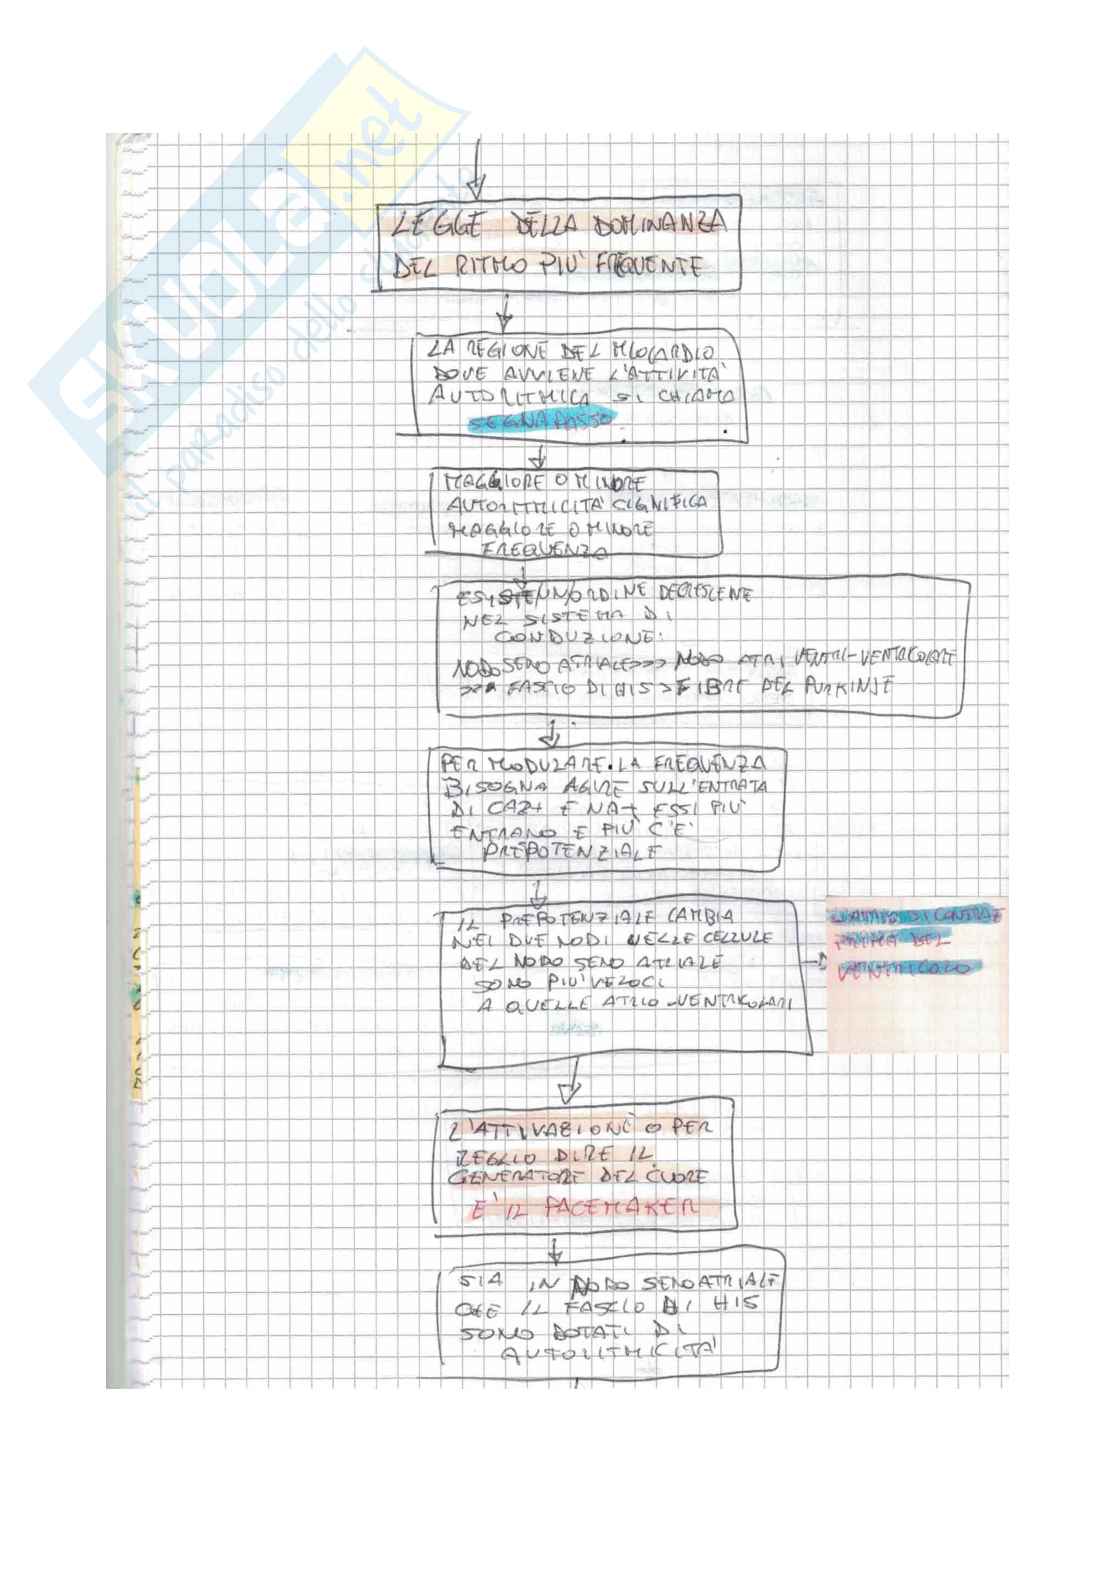 SKUOLA.net
il paradiso dello studente
LEGGE DELLA DOMINANZA
DEL RITMO PIU' FREQUENTE
LA REGIONE DEL MIOCARDIO
DOVE AVVIENE L'ATTIVITA'
AUTORITMICA SI CHIAMA
SEGNAPASSO
MAGGIORE O MINORE
AUTORITMICITA' CIGNIFICA
MAGGIORE O MINORE
FREQUENZA
ESISTE UN ORDINE DECRESCENE
NEL SISTEMA DI
CONDUZIONE:
NODO SENO ATRIALE>>> NODO ATRI VENTRI-VENTRICOLARE
>>> FASCIO DI HIS > FIBRE DEL PURKINJE
PER MODULARE LA FREQUENZA
BISOGNA AGIRE SULL'ENTRATA
DI CA2+ E NA+ ESSI PIU'
ENTRANO E PIU' C'E'
PREPOTENZIALE
IL PREPOTENZIALE CAMBIA
NEI DUE NODI NELLE CELLULE
DEL NODO SENO ATRIALE
SONO PIU' VELOCI
A QUELLE ATRIO-VENTRICOLARI
DI CONTRAE
PRIMA DEL
VENTRICOLO
L'ATTIVAZIONE O PER
MEGLIO DIRE IL
GENERATORE DEL CUORE
E' IL PACEMAKER
SIA IN NODO SENOATRIALE
CHE IL FASCIO DI HIS
SONO DOTATI DI
AUTORITMICITA'